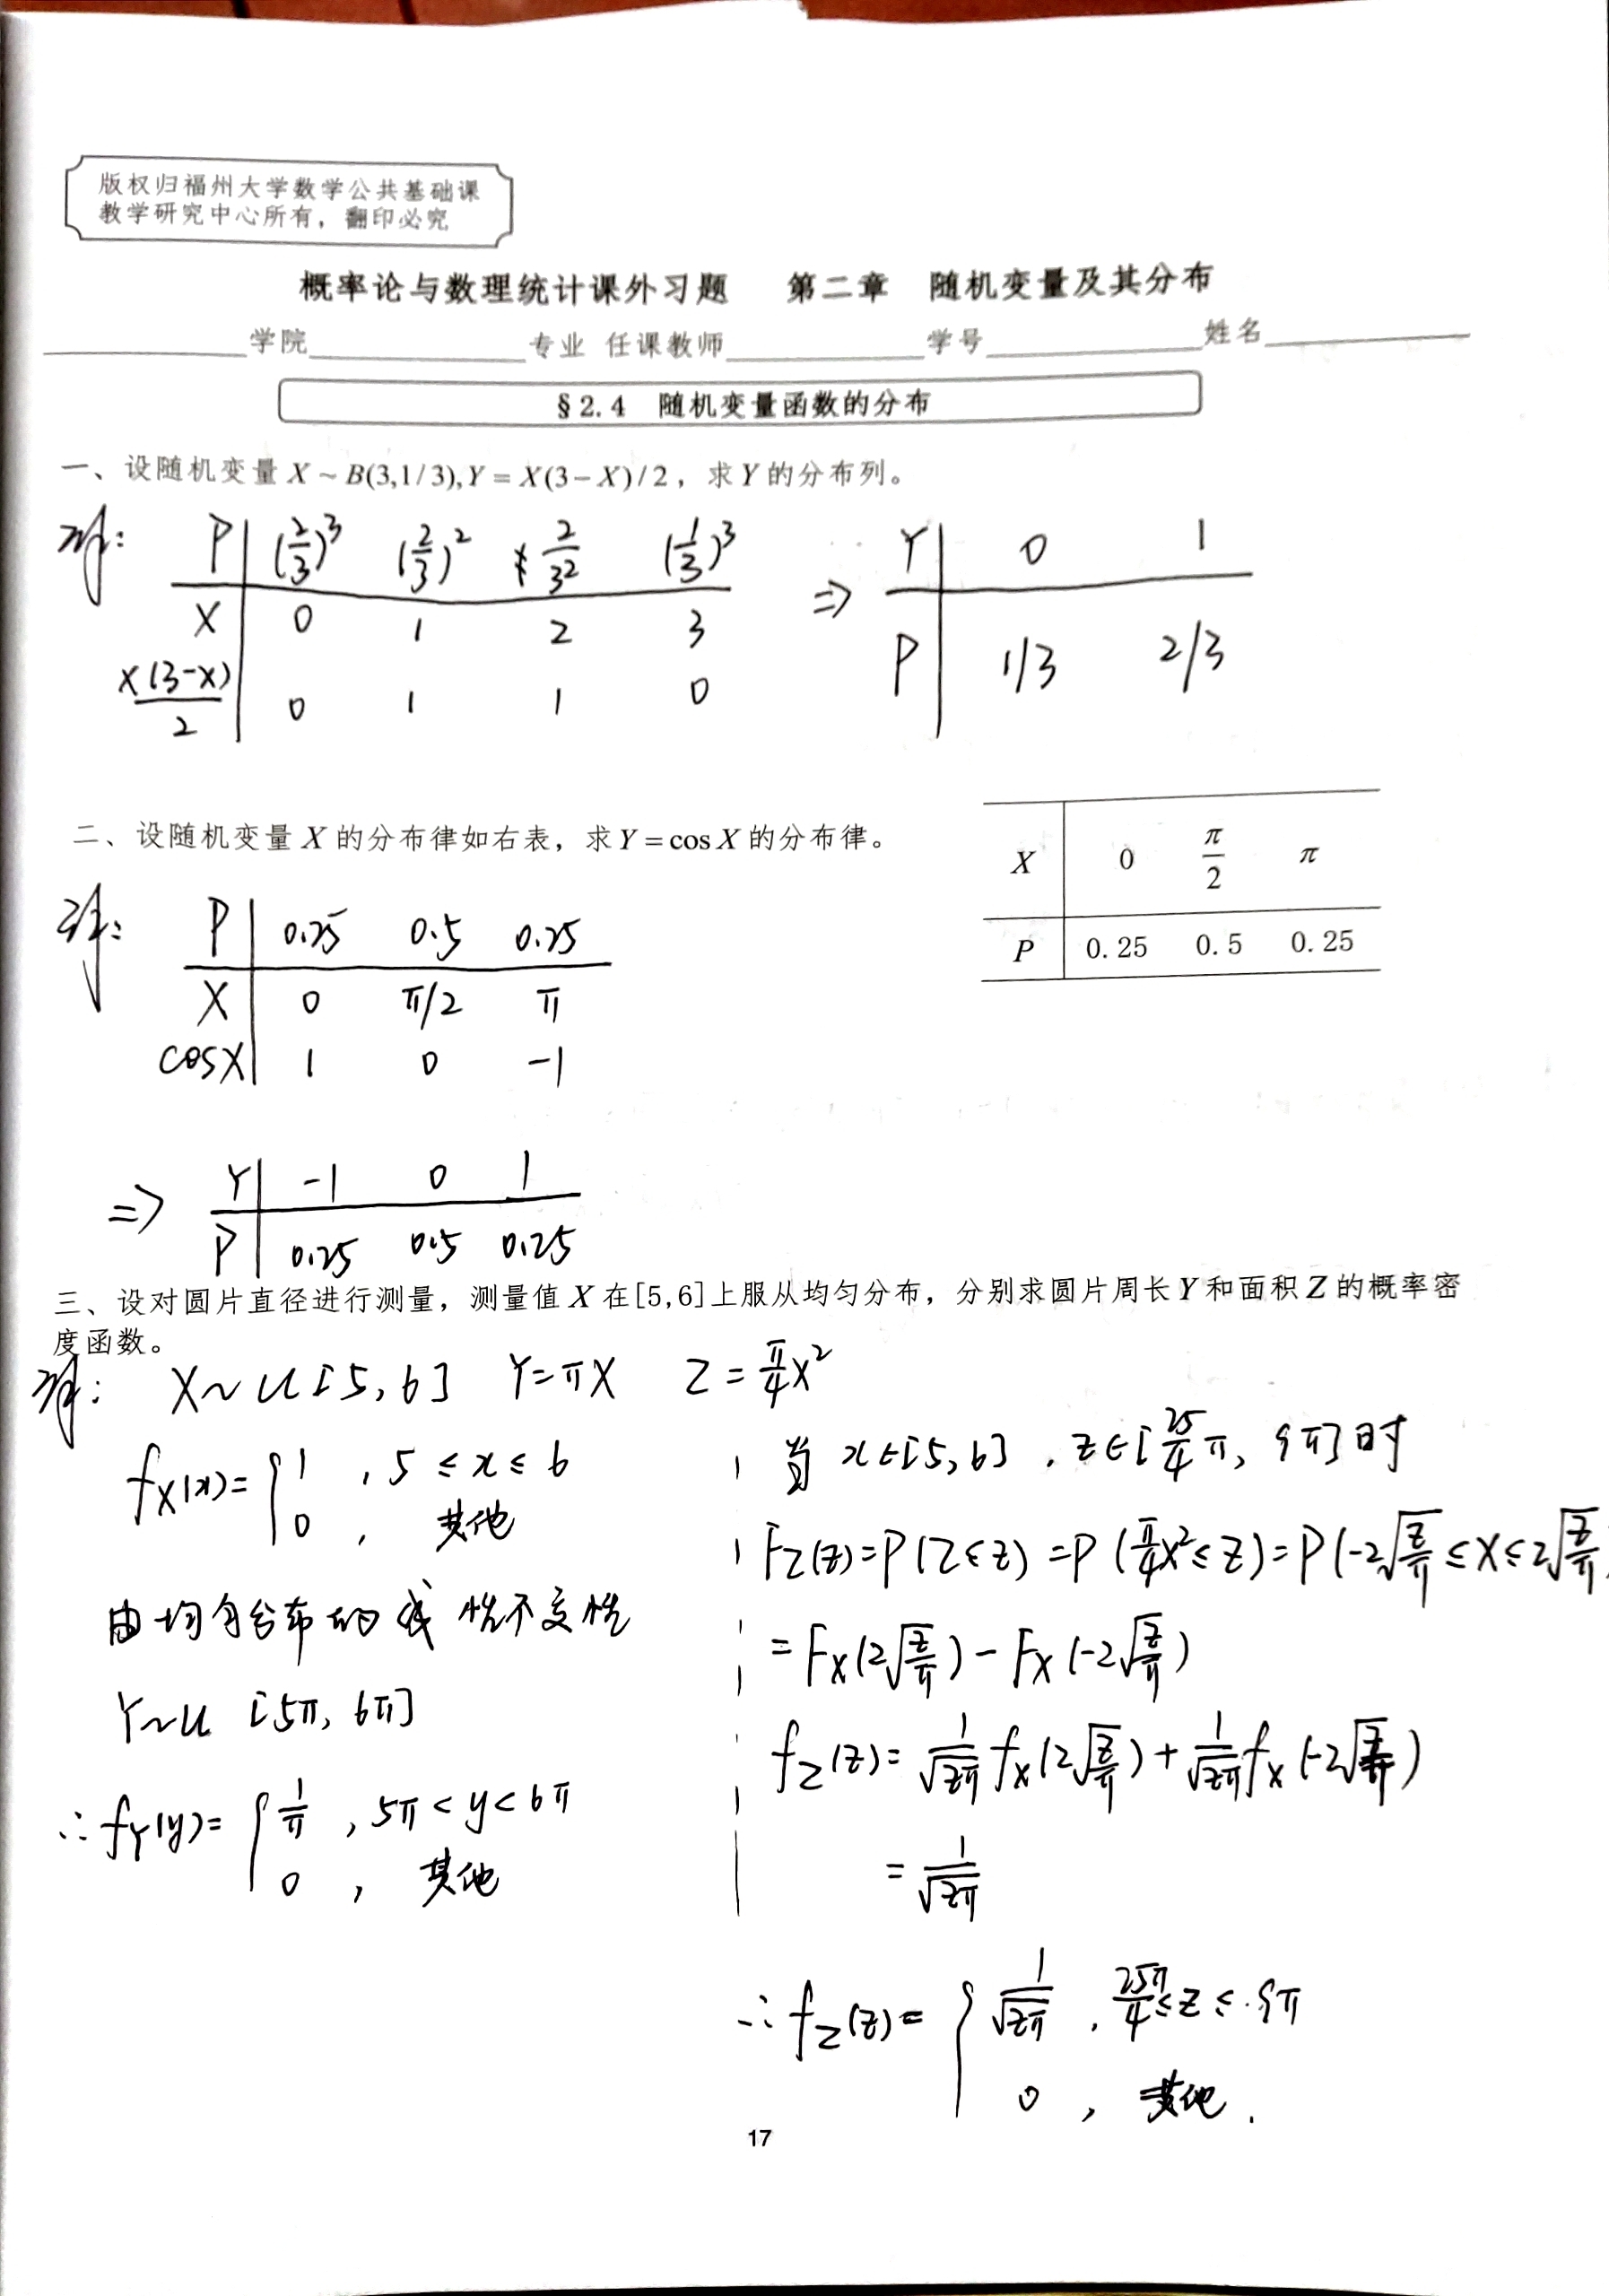 版权归福州大学数学公共基础课
教学研究中心所有，翻印必究
概率论与数理统计课外习题 第二章 随机变量及其分布
学院 专业 任课教师 学号 姓名
§2.4 随机变量函数的分布
一、设随机变量 X ~ B(3,1/3),Y = X(3−X)/2，求Y的分布列。
解：
P (2/3)³ (2/3)² 2/3² (1/3)³
X 0 1 2 3
X(3-X)/2 0 1 1 0
⇒ Y 0 1
P 1/3 2/3
二、设随机变量 X 的分布律如右表，求Y=cos X的分布律。
X 0 π/2 π
P 0.25 0.5 0.25
解：
P 0.25 0.5 0.25
X 0 π/2 π
cosX 1 0 -1
⇒ Y -1 0 1
P 0.25 0.5 0.25
三、设对圆片直径进行测量，测量值X在[5,6]上服从均匀分布，分别求圆片周长Y和面积Z的概率密
度函数。
解： X~U[5,6] Y=πX Z=π/4 X²
fX(x)= { 1 , 5≤x≤6
0 , 其他
由均匀分布的线性不变性
Y~U [5π, 6π]
∴ fY(y)= { 1/π , 5π<y<6π
0 , 其他
当 x∈[5,6] , z∈[25/4 π, 9π]时
FZ(z)=P(Z≤z) =P(π/4 X²≤z)=P(-2√(z/π) ≤X≤2√(z/π)
=FX(2√(z/π))-FX(-2√(z/π))
fZ(z)= 1/√(zπ) fX(2√(z/π))+1/√(zπ) fX(-2√(z/π))
= 1/√(zπ)
∴ fZ(z)= { 1/√(zπ) , 25π/4≤z≤9π
0 , 其他.
17